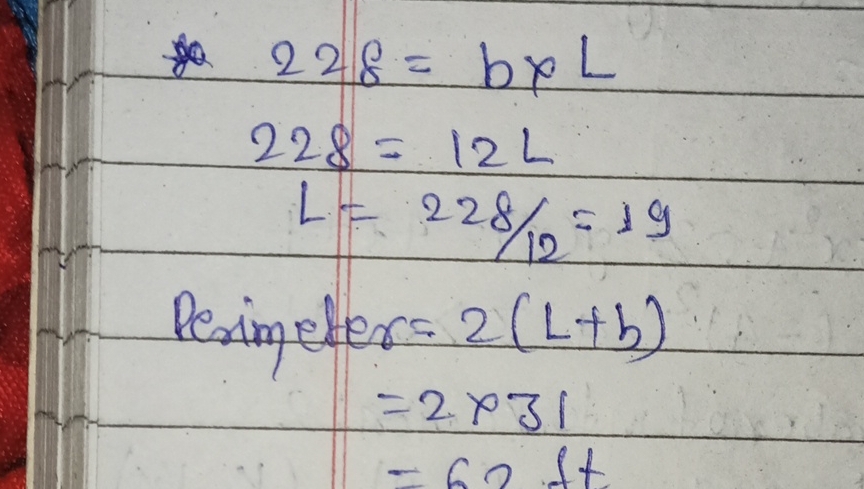 228 = b × L
228 = 12L
L = 228/12 = 19
Perimeter = 2(L+b)
= 2 × 31
= 62 ft